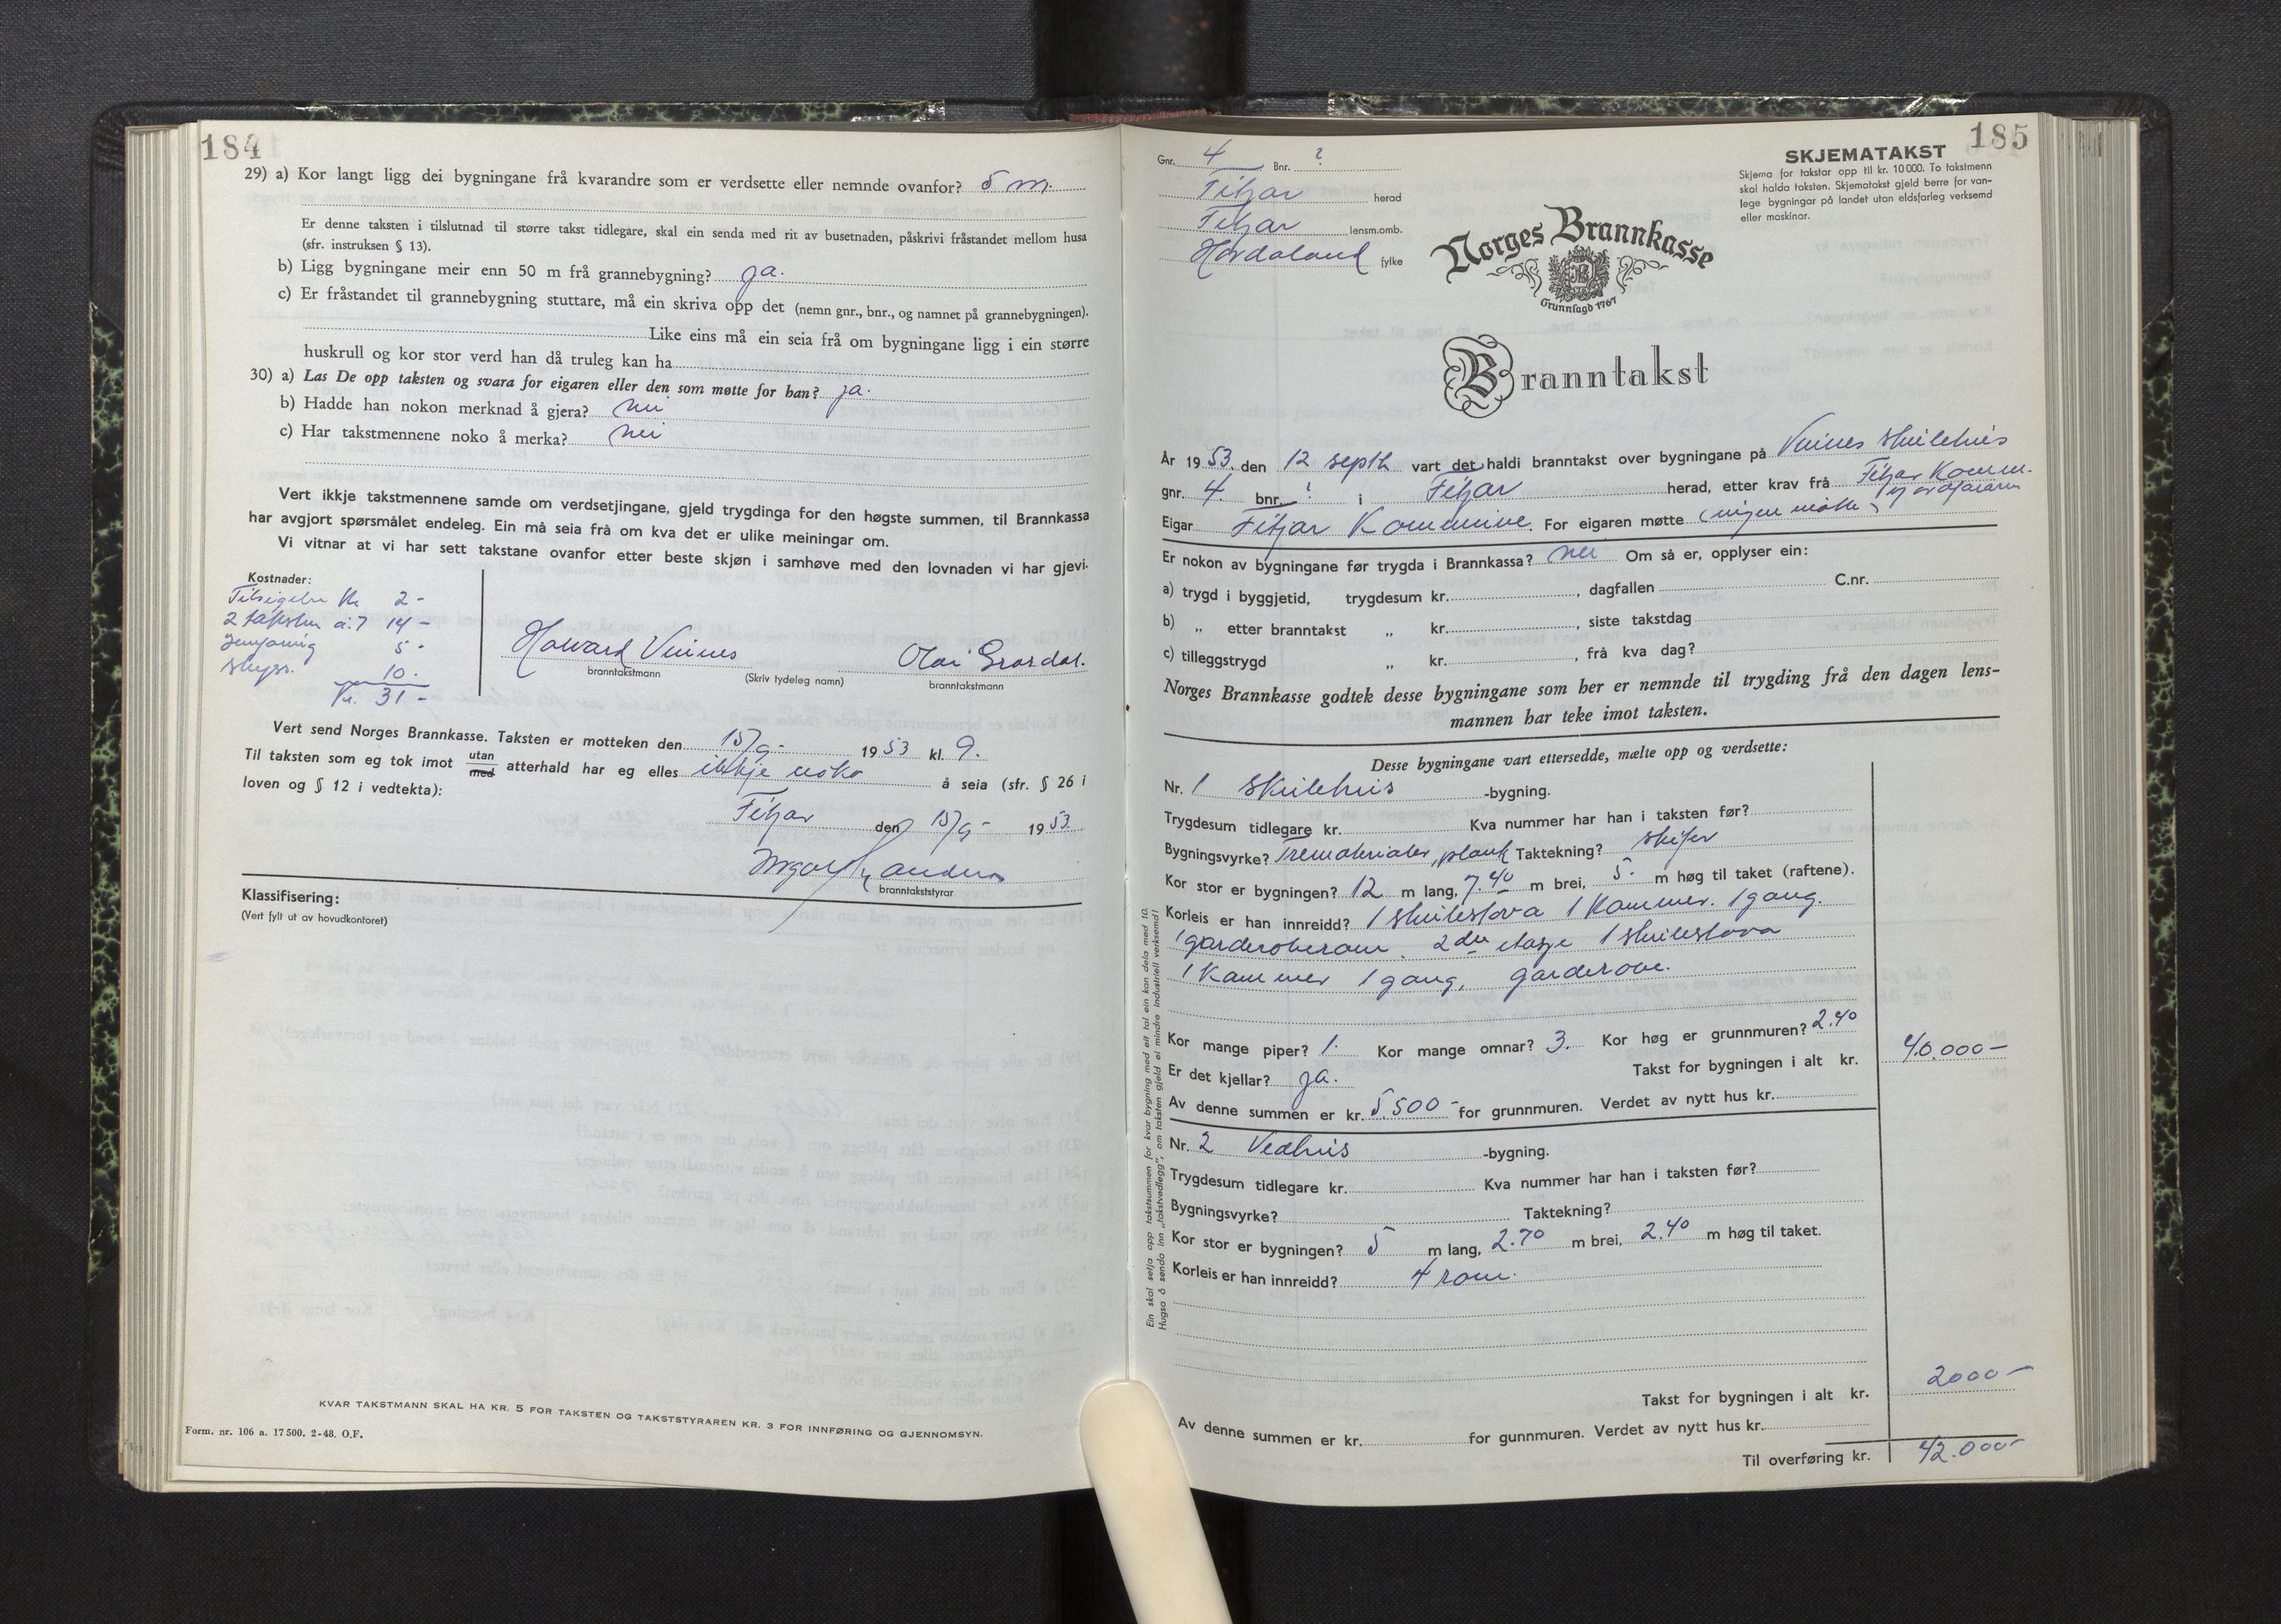 184
29) a) Kor langt ligg dei bygningane frå kvarandre som er verdsette eller nemnde ovanfor? 5 m.
Er denne taksten i tilslutnad til større takst tidlegare, skal ein senda med rit av busetnaden, påskrivi fråstandet mellom husa
(sfr. instruksen § 13).
b) Ligg bygningane meir enn 50 m frå grannebygning? ja.
c) Er fråstandet til grannebygning stuttare, må ein skriva opp det (nemn gnr., bnr., og namnet på grannebygningen).
Like eins må ein seia frå om bygningane ligg i ein større
huskrull og kor stor verd han då truleg kan ha
30) a) Las De opp taksten og svara for eigaren eller den som møtte for han? ja.
b) Hadde han nokon merknad å gjera? nei
c) Har takstmennene noko å merka? nei
Vert ikkje takstmennene samde om verdsetjingane, gjeld trygdinga for den høgste summen, til Brannkassa
har avgjort spørsmålet endeleg. Ein må seia frå om kva det er ulike meiningar om.
Vi vitnar at vi har sett takstane ovanfor etter beste skjøn i samhøve med den lovnaden vi har gjevi.
Kostnader:
Tilsigelse kr 2-
2 takstm a. 7 14 -
Jemføring 5 -
Skyss. 10.
Kr. 31 -
Havard Vinnes
branntakstmann
(Skriv tydeleg namn)
Olai Grasdal.
branntakstmann
Vert send Norges Brannkasse. Taksten er motteken den 15/9- 1953 kl. 9.
Til taksten som eg tok imot utan
med atterhald har eg elles ikkje noko å seia (sfr. § 26 i
loven og § 12 i vedtekta):
Fitjar den 15/9- 1953.
branntakststyrar
Klassifisering:
(Vert fylt ut av hovudkontoret)
KVAR TAKSTMANN SKAL HA KR. 5 FOR TAKSTEN OG TAKSTSTYRAREN KR. 3 FOR INNFØRING OG GJENNOMSYN.
Form. nr. 106 a. 17 500. 2-48. O.F.
185
Gnr. 4 Bnr. ?
Fitjar herad
Fitjar lensm.omb.
Hordaland fylke
SKJEMATAKST
Skjema for takstar opp til kr. 10 000. To takstmenn
skal halda taksten. Skjematakst gjeld berre for van-
lege bygningar på landet utan eldsfarleg verksemd
eller maskinar.
Norges Brannkasse
Grunnlagd 1767
Branntakst
År 1953. den 12 septb. vart det haldi branntakst over bygningane på Vinnes skulehus
gnr. 4. bnr. ? i Fitjar herad, etter krav frå Fitjar Komm.
v/ ordføraren
Eigar Fitjar Kommune. For eigaren møtte ingen møtte
Er nokon av bygningane før trygda i Brannkassa? nei Om så er, opplyser ein:
a) trygd i byggjetid, trygdesum kr. , dagfallen C.nr.
b) „ etter branntakst „ kr. , siste takstdag
c) tilleggstrygd „ kr. , frå kva dag?
Norges Brannkasse godtek desse bygningane som her er nemnde til trygding frå den dagen lens-
mannen har teke imot taksten.
Desse bygningane vart ettersedde, mælte opp og verdsette:
Nr. 1 Skulehus -bygning.
Trygdesum tidlegare kr. Kva nummer har han i taksten før?
Bygningsvyrke? Trematerialer, plank Taktekning? skifer
Kor stor er bygningen? 12 m lang, 7.40 m brei, 5- m høg til taket (raftene).
Korleis er han innreidd? 1 skulestova 1 Kammer. 1 gang.
1 garderoberom. 2dre etasje 1 skulestova
1 Kammer 1 gang, garderobe.
Kor mange piper? 1. Kor mange omnar? 3. Kor høg er grunnmuren? 2.40
Er det kjellar? ja. Takst for bygningen i alt kr. 40.000-
Av denne summen er kr. 5.500- for grunnmuren. Verdet av nytt hus kr.
Nr. 2 Vedhus -bygning.
Trygdesum tidlegare kr. Kva nummer har han i taksten før?
Bygningsvyrke? Taktekning?
Kor stor er bygningen? 5 m lang, 2.70 m brei, 2.40 m høg til taket.
Korleis er han innreidd? 4 rom.
Takst for bygningen i alt kr. 2000-
Av denne summen er kr. for gunnmuren. Verdet av nytt hus kr.
Til overføring kr. 42.000-
Ein skal setja opp takstsummen for kvar bygning med eit tal ein kan dela med 10.
Hugsa å senda inn „takstvedlegg”, om taksten gjeld ei mindre industriell verksemd!